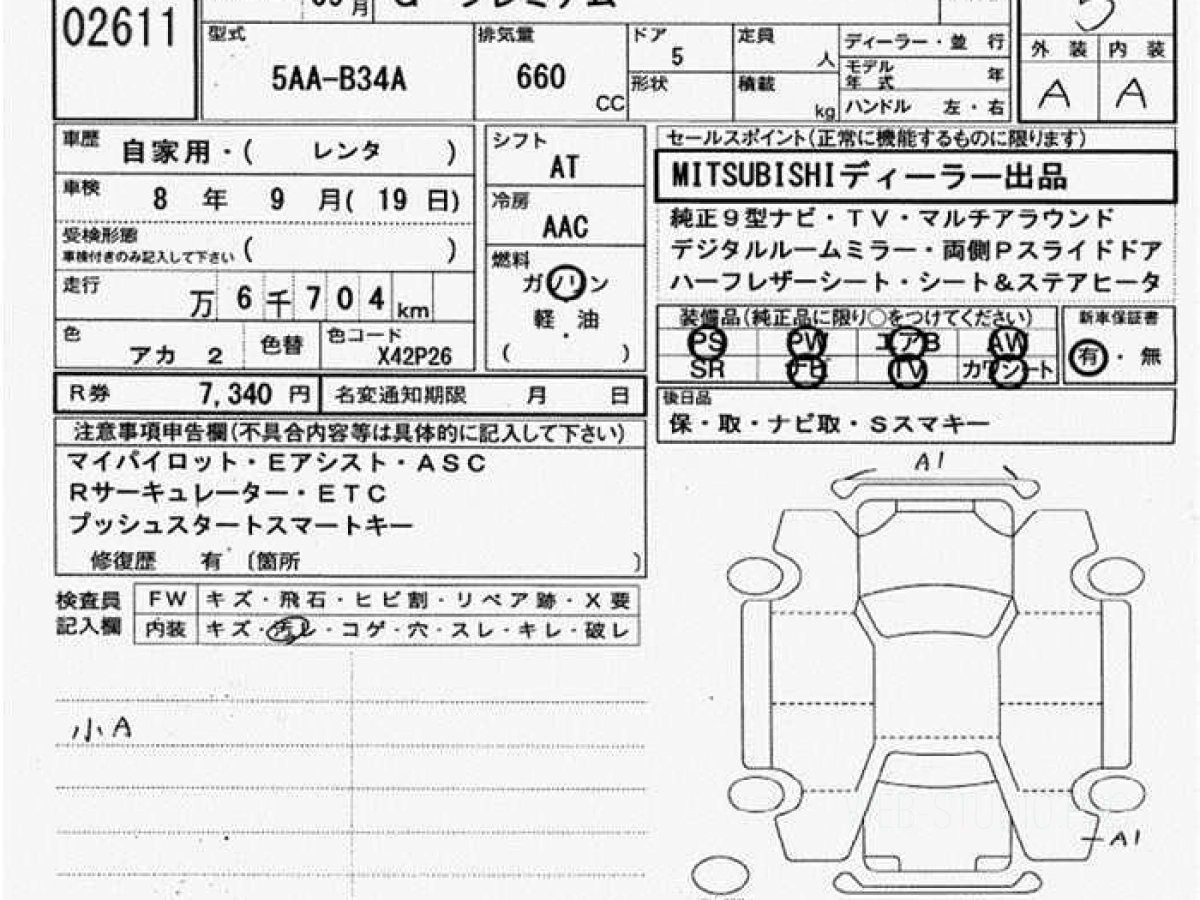 02611
月
G プレミアム
5
型式
5AA-B34A
排気量
660
CC
ドア
5
形状
定員
人
積載
kg
ディーラー・並 行
モデル
年 式
年
ハンドル 左・右
外 装
内 装
A
A
車歴
自家用・( レンタ )
車検
8 年 9 月( 19 日)
受検形態
車検付きのみ記入して下さい ( )
走行
万 6 千 7 0 4 km
色
アカ 2
色替
色コード
X42P26
シフト
AT
冷房
AAC
燃料
ガソリン
軽 油
・
( )
セールスポイント(正常に機能するものに限ります)
MITSUBISHIディーラー出品
純正9型ナビ・TV・マルチアラウンド
デジタルルームミラー・両側Pスライドドア
ハーフレザーシート・シート&ステアヒータ
装備品(純正品に限り○をつけてください)
PS PW エアB AW
SR ナビ TV カワシート
新車保証書
有・無
R券 7,340 円
名変通知期限 月 日
後日品
保・取・ナビ取・Sスマキー
注意事項申告欄(不具合内容等は具体的に記入して下さい)
マイパイロット・Eアシスト・ASC
Rサーキュレーター・ETC
プッシュスタートスマートキー
修復歴 有 〔箇所 〕
検査員
記入欄
FW キズ・飛石・ヒビ割・リペア跡・X要
内装 キズ・汚レ・コゲ・穴・スレ・キレ・破レ
小A
A1
A1